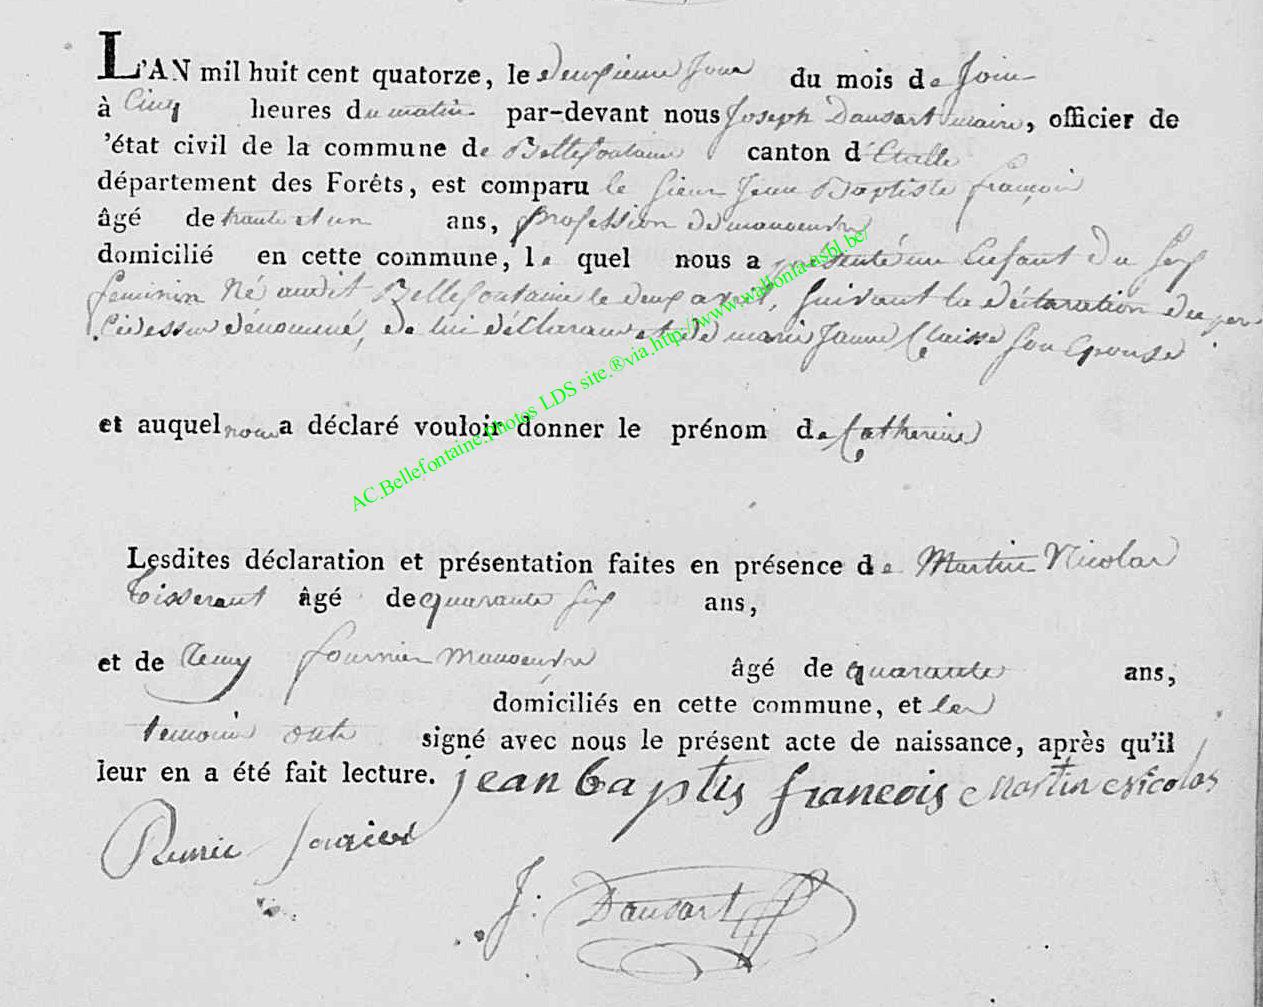 L'AN mil huit cent quatorze, le deuxieme jour du mois de Join
à Cinq heures du matin par-devant nous Joseph Dausart maire, officier de
'état civil de la commune de Bellefontaine canton d'Etalle
département des Forêts, est comparu le sieur Jean Baptiste françois
âgé de trente et un ans, profession de manoeuvre
domicilié en cette commune, le quel nous a présenté un Enfant du sex
feminin Né audit Bellefontaine le deux avril, suivant la déclaration du per
Cidessus dénommé, de lui déclarant et de marie Jeanne Claisse son Epouse
et auquel nous a déclaré vouloir donner le prénom de Catherine
AC.Bellefontaine.photos LDS site.®via.http://www.wallonia-asbl.be/
Lesdites déclaration et présentation faites en présence de Martin Nicolas
tisserant âgé de quarante six ans,
et de Remy fournier manoeuvre âgé de quarante ans,
domiciliés en cette commune, et les
temoins onts signé avec nous le présent acte de naissance, après qu'il
leur en a été fait lecture. jean baptis francois Martin Nicolas
Remie
J: Dausart